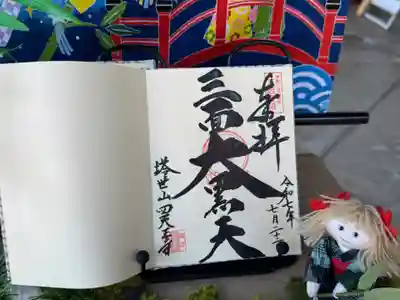 奉拝
令和七年
七月二十二
三面大黒天
塔世山 四天王寺